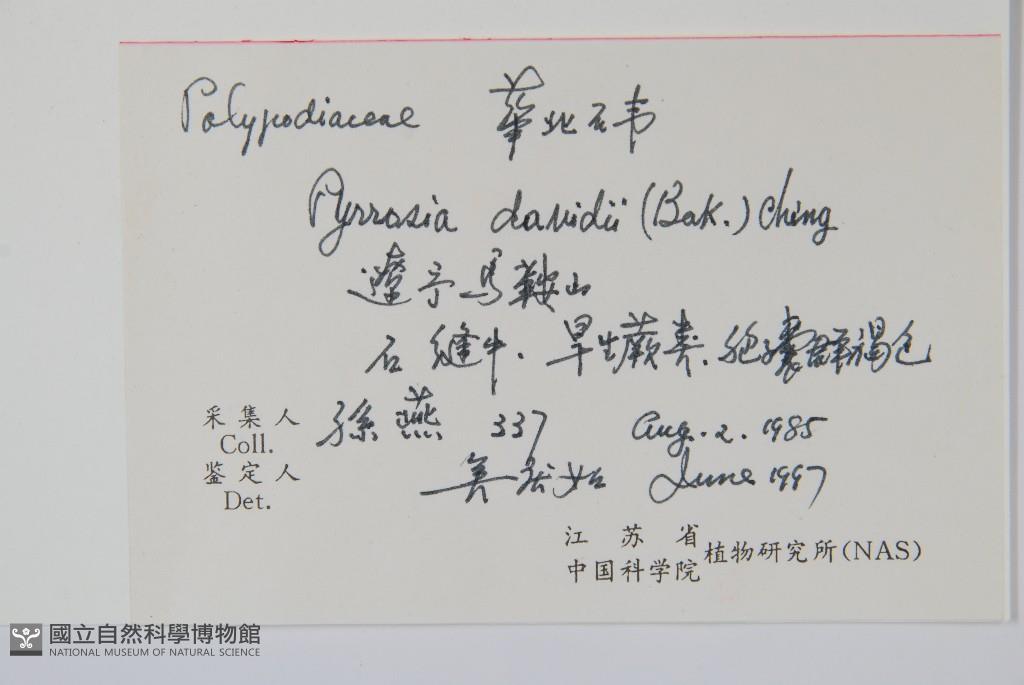 Polypodiaceae 華北石韦
Pyrrosia davidii (Bak.) Ching
遼宁馬鞍山
石縫中. 旱生蕨类. 孢子囊群褐色
采集人 孫燕 337 Aug. 2. 1985
Coll.
鉴定人 June 1997
Det.
江苏省
中国科学院 植物研究所(NAS)
國立自然科學博物館
NATIONAL MUSEUM OF NATURAL SCIENCE